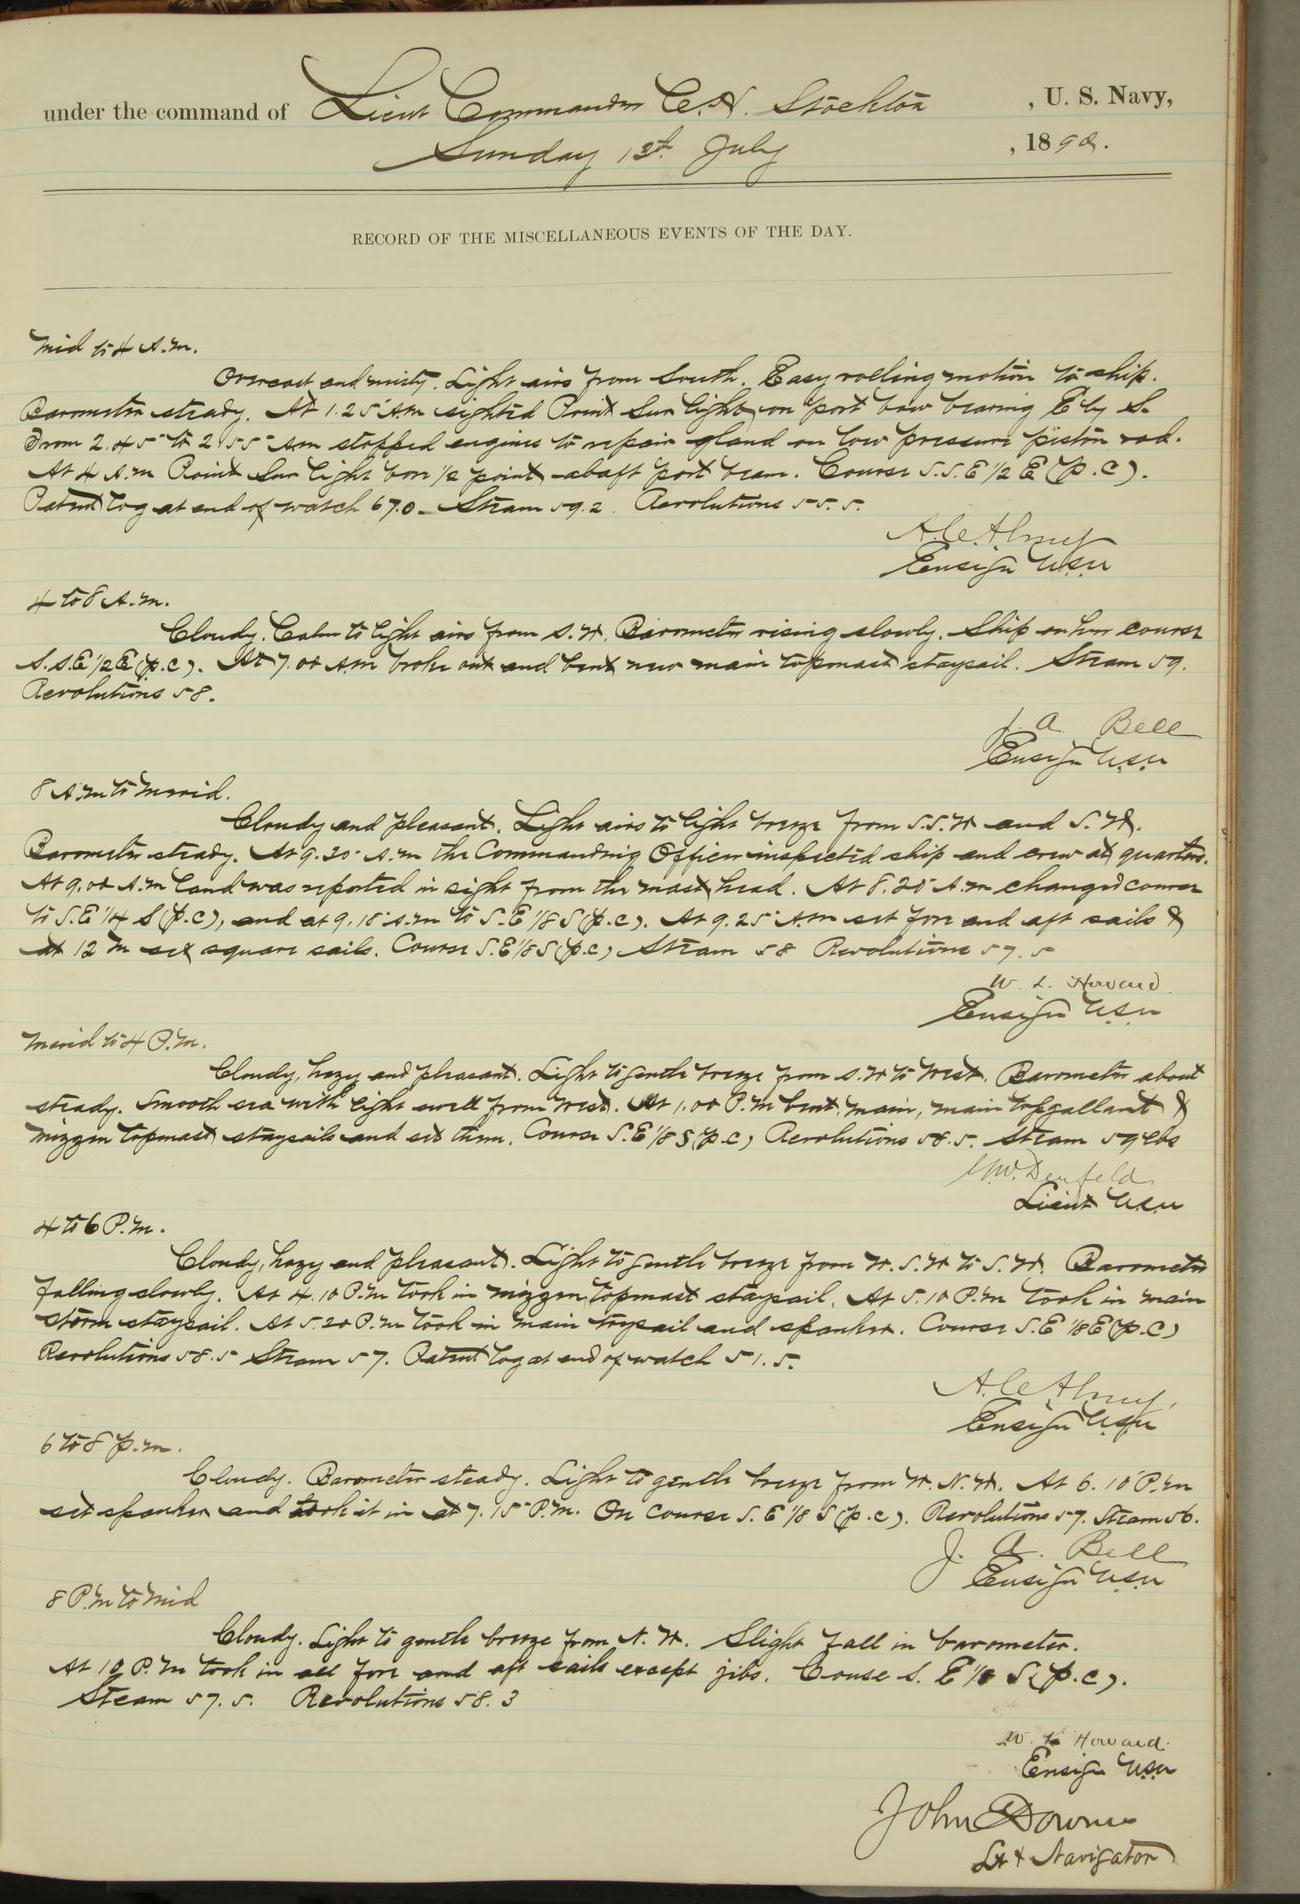 under the command of Lieut Commander C. H. Stockton, U. S. Navy,
Sunday 13th July, 1890.
RECORD OF THE MISCELLANEOUS EVENTS OF THE DAY.
Mid to 4 A.M.
Overcast and misty. Light airs from South. Easy rolling motion to ship.
Barometer steady. At 1.25 AM sighted Point Sur light on port bow bearing E by S.
From 2.45 to 2.55 AM stopped engines to repair gland on low pressure piston rod.
At 4 A.M Point Sur light bore 1/2 point abaft port beam. Course S.S.E 1/2 E (p.c).
Patent log at end of watch 67.0 - Steam 59.2. Revolutions 55.5.
A. C. Almy
Ensign USN
4 to 8 A.M.
Cloudy. Calm to light airs from S.W. Barometer rising slowly. Ship on her course
S.S.E 1/2 E (p.c). At 7.00 AM broke out and bent new main topmast staysail. Steam 59.
Revolutions 58.
J. A. Bell
Ensign USN
8 AM to Merid.
Cloudy and pleasant. Light airs to light breeze from S.S.W and S.W.
Barometer steady. At 9.20 A.M the Commanding Officer inspected ship and crew at quarters.
At 9.00 A.M land was reported in sight from the mast head. At 8.20 A.M changed course
to S.E 1/4 S (p.c), and at 9.18 A.M to S.E 1/8 S (p.c). At 9.25 A.M set fore and aft sails &
at 12 M set square sails. Course S.E 1/8 S (p.c) Steam 58 Revolutions 57.5
W. L. Howard
Ensign USN
Merid to 4 P.M.
Cloudy, hazy and pleasant. Light to gentle breeze from S.W to West. Barometer about
steady. Smooth sea with light swell from West. At 1.00 P.M bent main, main topgallant &
mizzen topmast staysails and set them. Course S.E 1/8 S (p.c) Revolutions 58.5. Steam 59 lbs
G. W. Denfeld
Lieut USN
4 to 6 P.M.
Cloudy, hazy and pleasant. Light to gentle breeze from W.S.W to S.W. Barometer
falling slowly. At 4.10 P.M took in mizzen topmast staysail. At 5.10 P.M took in main
storm staysail. At 5.20 P.M took in main trysail and spanker. Course S.E 1/8 E (p.c)
Revolutions 58.5 Steam 57. Patent log at end of watch 51.5.
A. C. Almy,
Ensign USN
6 to 8 p.m.
Cloudy. Barometer steady. Light to gentle breeze from W.N.W. At 6.10 P.M
set spanker and took it in at 7.15 P.M. On course S.E 1/8 S (p.c). Revolutions 57. Steam 56.
J. A. Bell
Ensign USN
8 P.M to Mid
Cloudy. Light to gentle breeze from N.W. Slight fall in barometer.
At 10 P.M took in all fore and aft sails except jibs. Couse S. E 1/8 S (p.c).
Steam 57.5. Revolutions 58.3
W. L. Howard.
Ensign USN
John Downes
Lt & Navigator